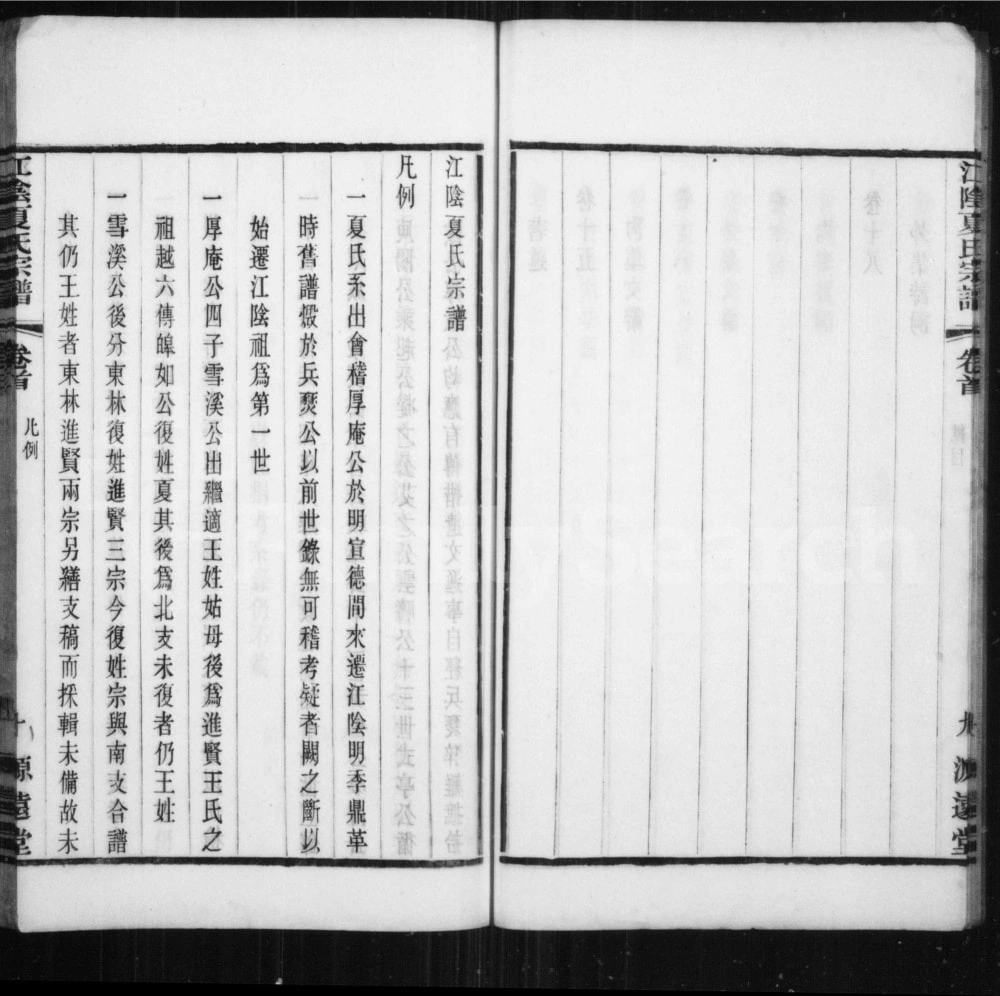 江陰夏氏宗譜
卷首
九
源遠堂
江陰夏氏宗譜
凡例
一夏氏系出會稽厚庵公於明宣德間來遷江陰明季鼎革
時舊譜燬於兵燹公以前世錄無可稽考疑者闕之斷以
始遷江陰祖爲第一世
一厚庵公四子雪溪公出繼適王姓姑母後爲進賢王氏之
祖越六傳皡如公復姓夏其後爲北支未復者仍王姓
一雪溪公後分東林復姓進賢三宗今復姓宗與南支合譜
其仍王姓者東林進賢兩宗另繕支稿而採輯未備故未
江陰夏氏宗譜
卷首
凡例
十
源遠堂